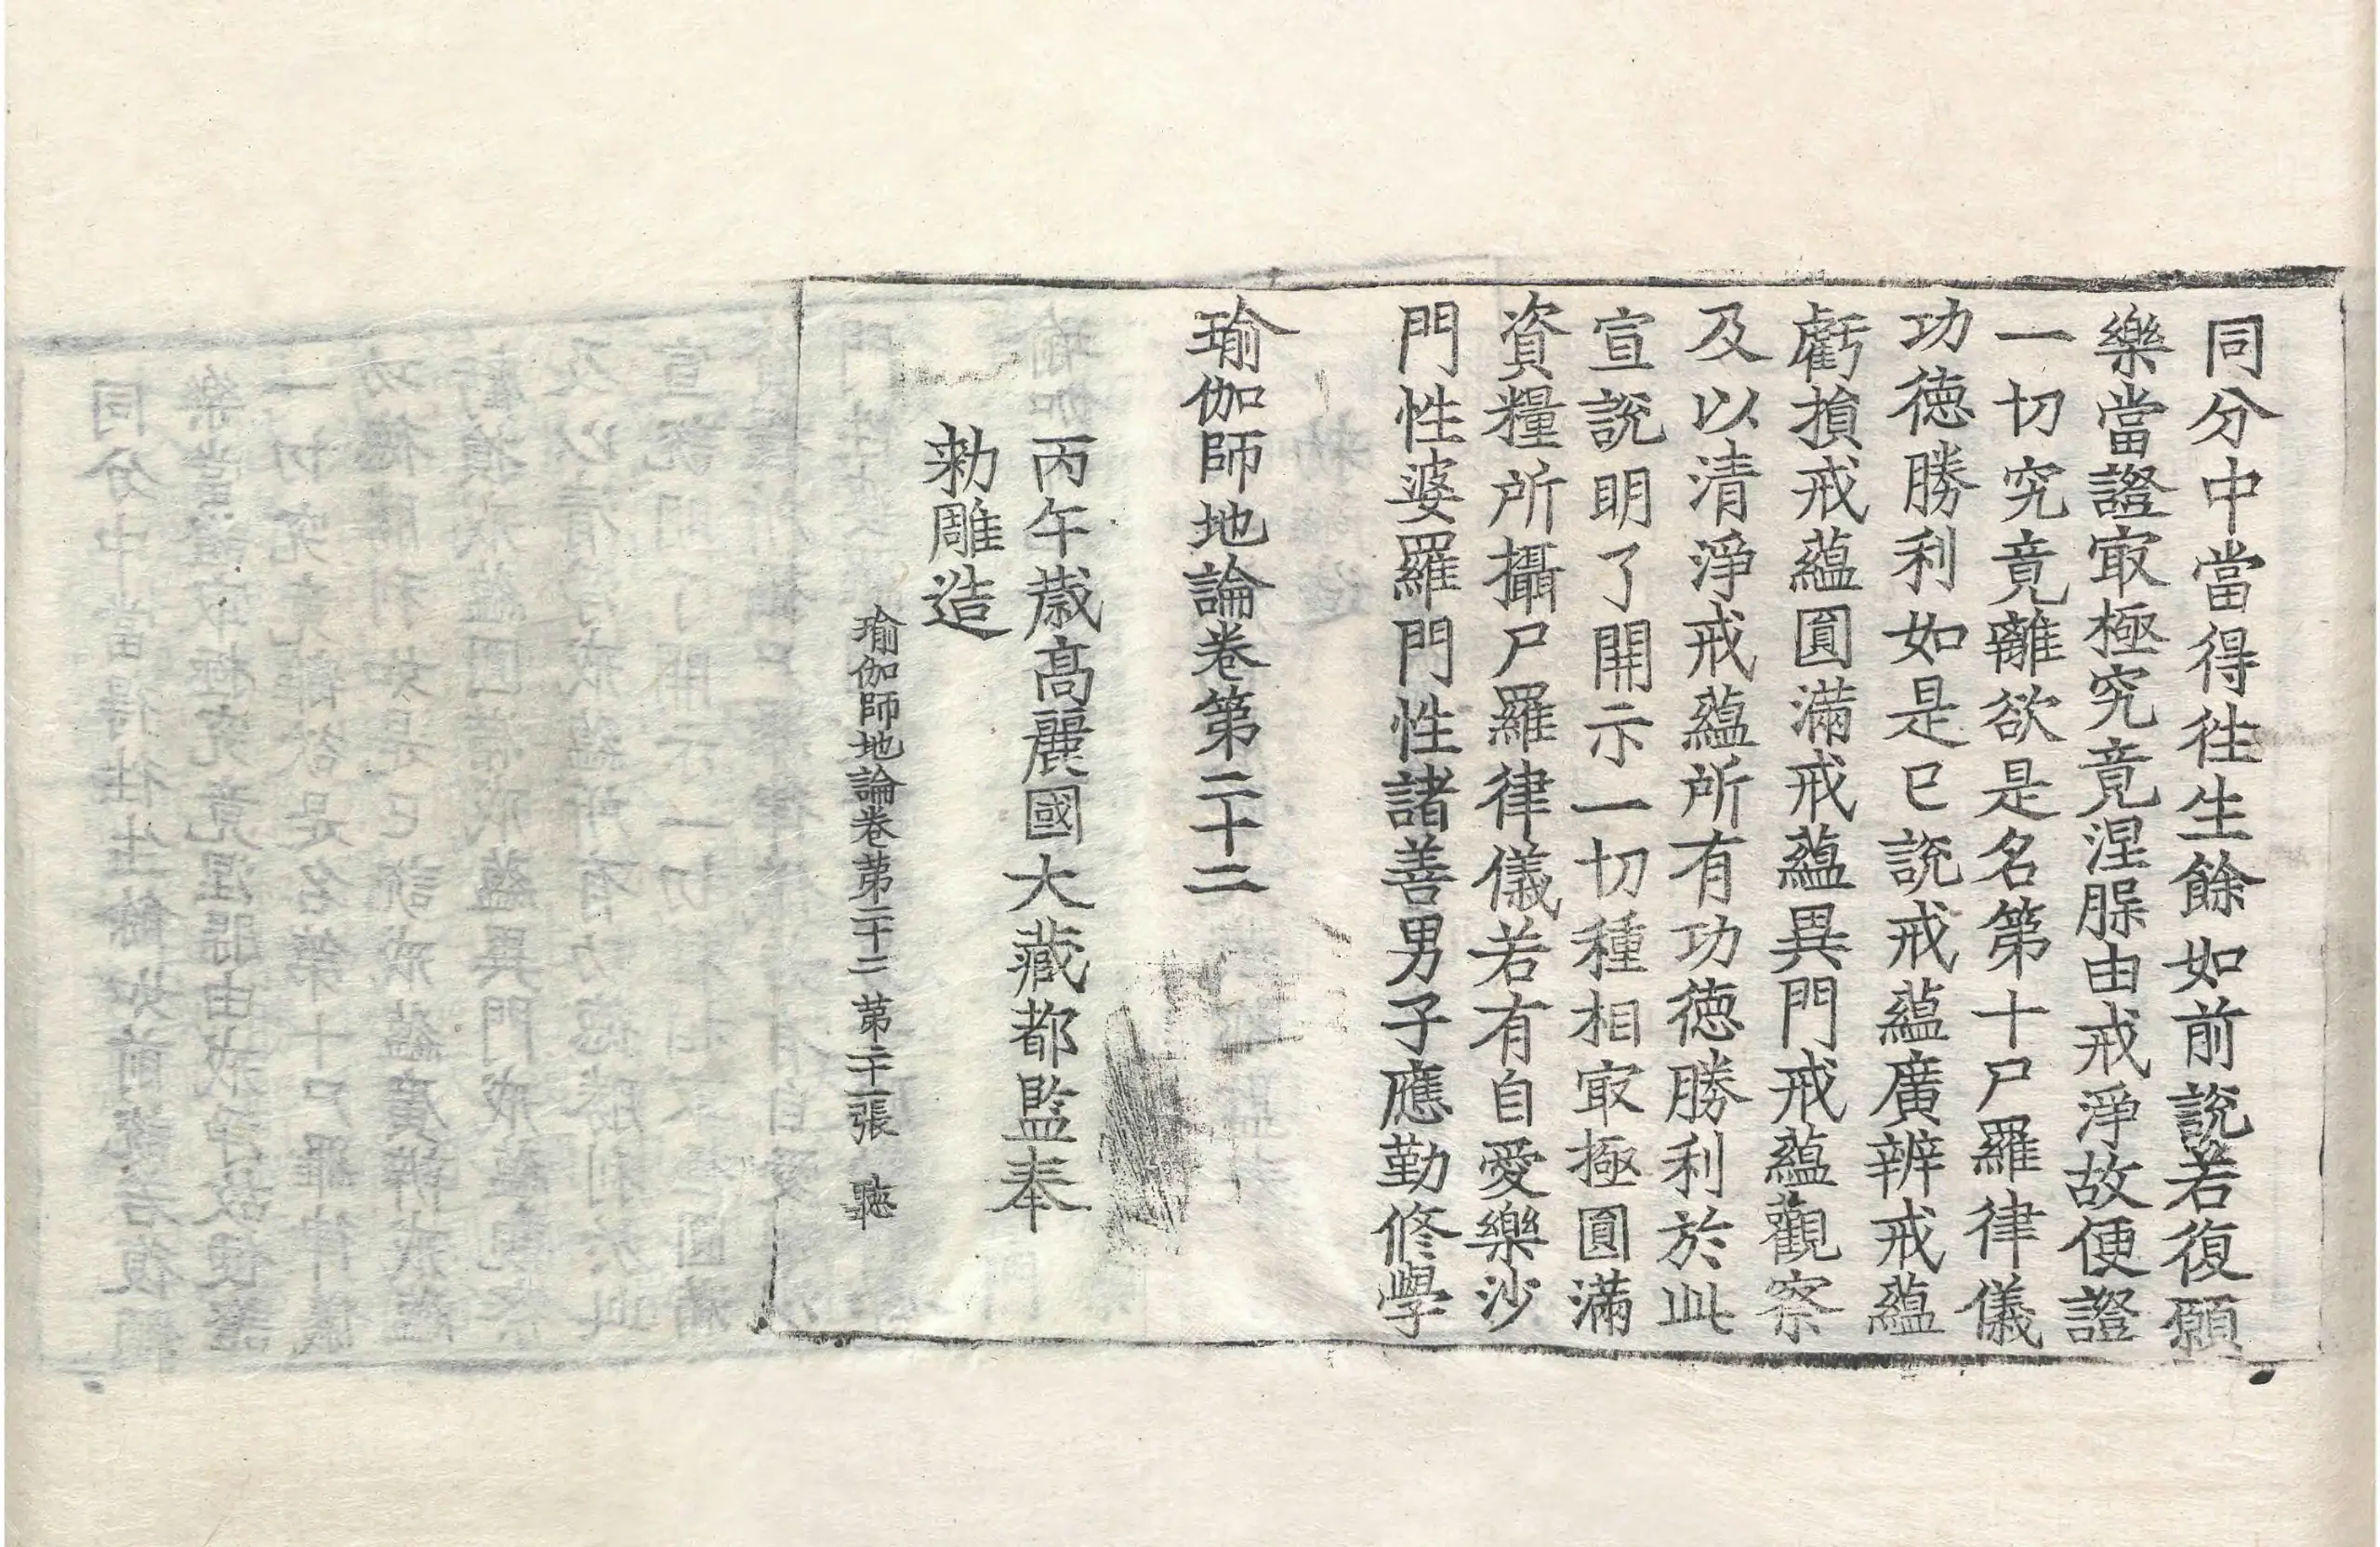 同分中當得徃生餘如前說若復願
樂當證㝡極究竟涅槃由戒淨故便證
一切究竟離欲是名第十尸羅律儀
功德勝利如是已說戒蘊廣辨戒蘊
虧損戒蘊圓滿戒蘊異門戒蘊觀察
及以清淨戒蘊所有功德勝利於此
宣說明了開示一切種相㝡極圓滿
資糧所攝尸羅律儀若有自愛樂沙
門性婆羅門性諸善男子應勤修學
瑜伽師地論卷第二十二
丙午歳高麗國大藏都監奉
勑雕造
瑜伽師地論卷第二十二 第二十二張 聽